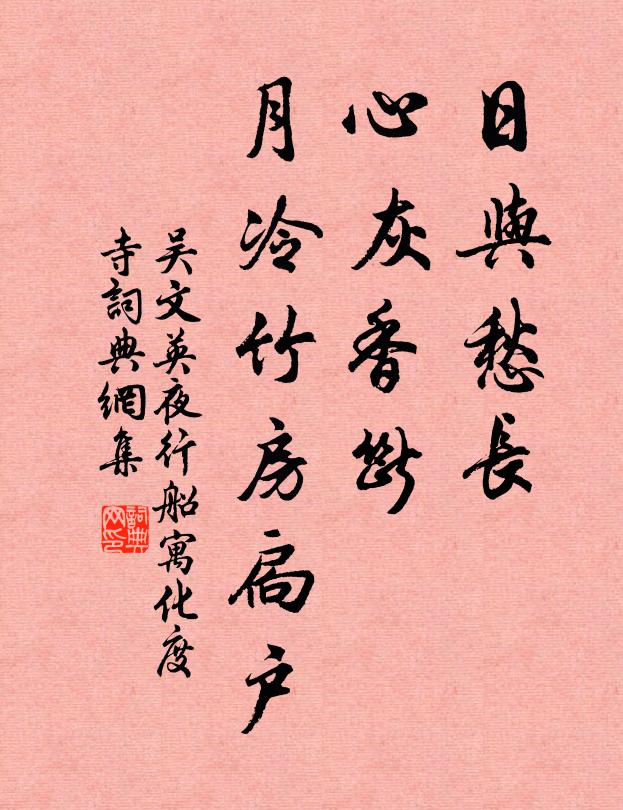 日與愁長
心灰香斷
月冷竹房扃户
吴文英夜行船寓化度
寺詞典網集
詞典
网印